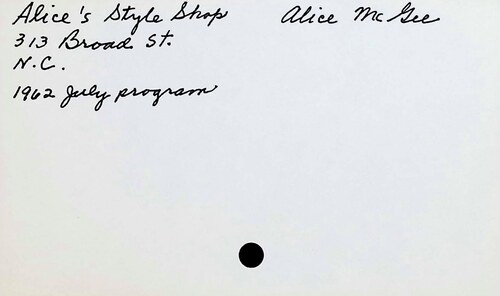 Alice's Style Shop Alice McGee
313 Broad St.
N.C.
1962 July program